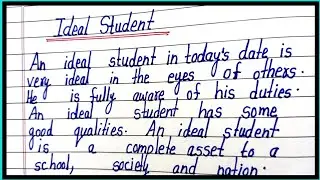 Ideal Student
An ideal student in today's date is
very ideal in the eyes of others.
He is fully aware of his duties.
An ideal student has some
good qualities. An ideal student
is a complete asset to a
school, society and nation.